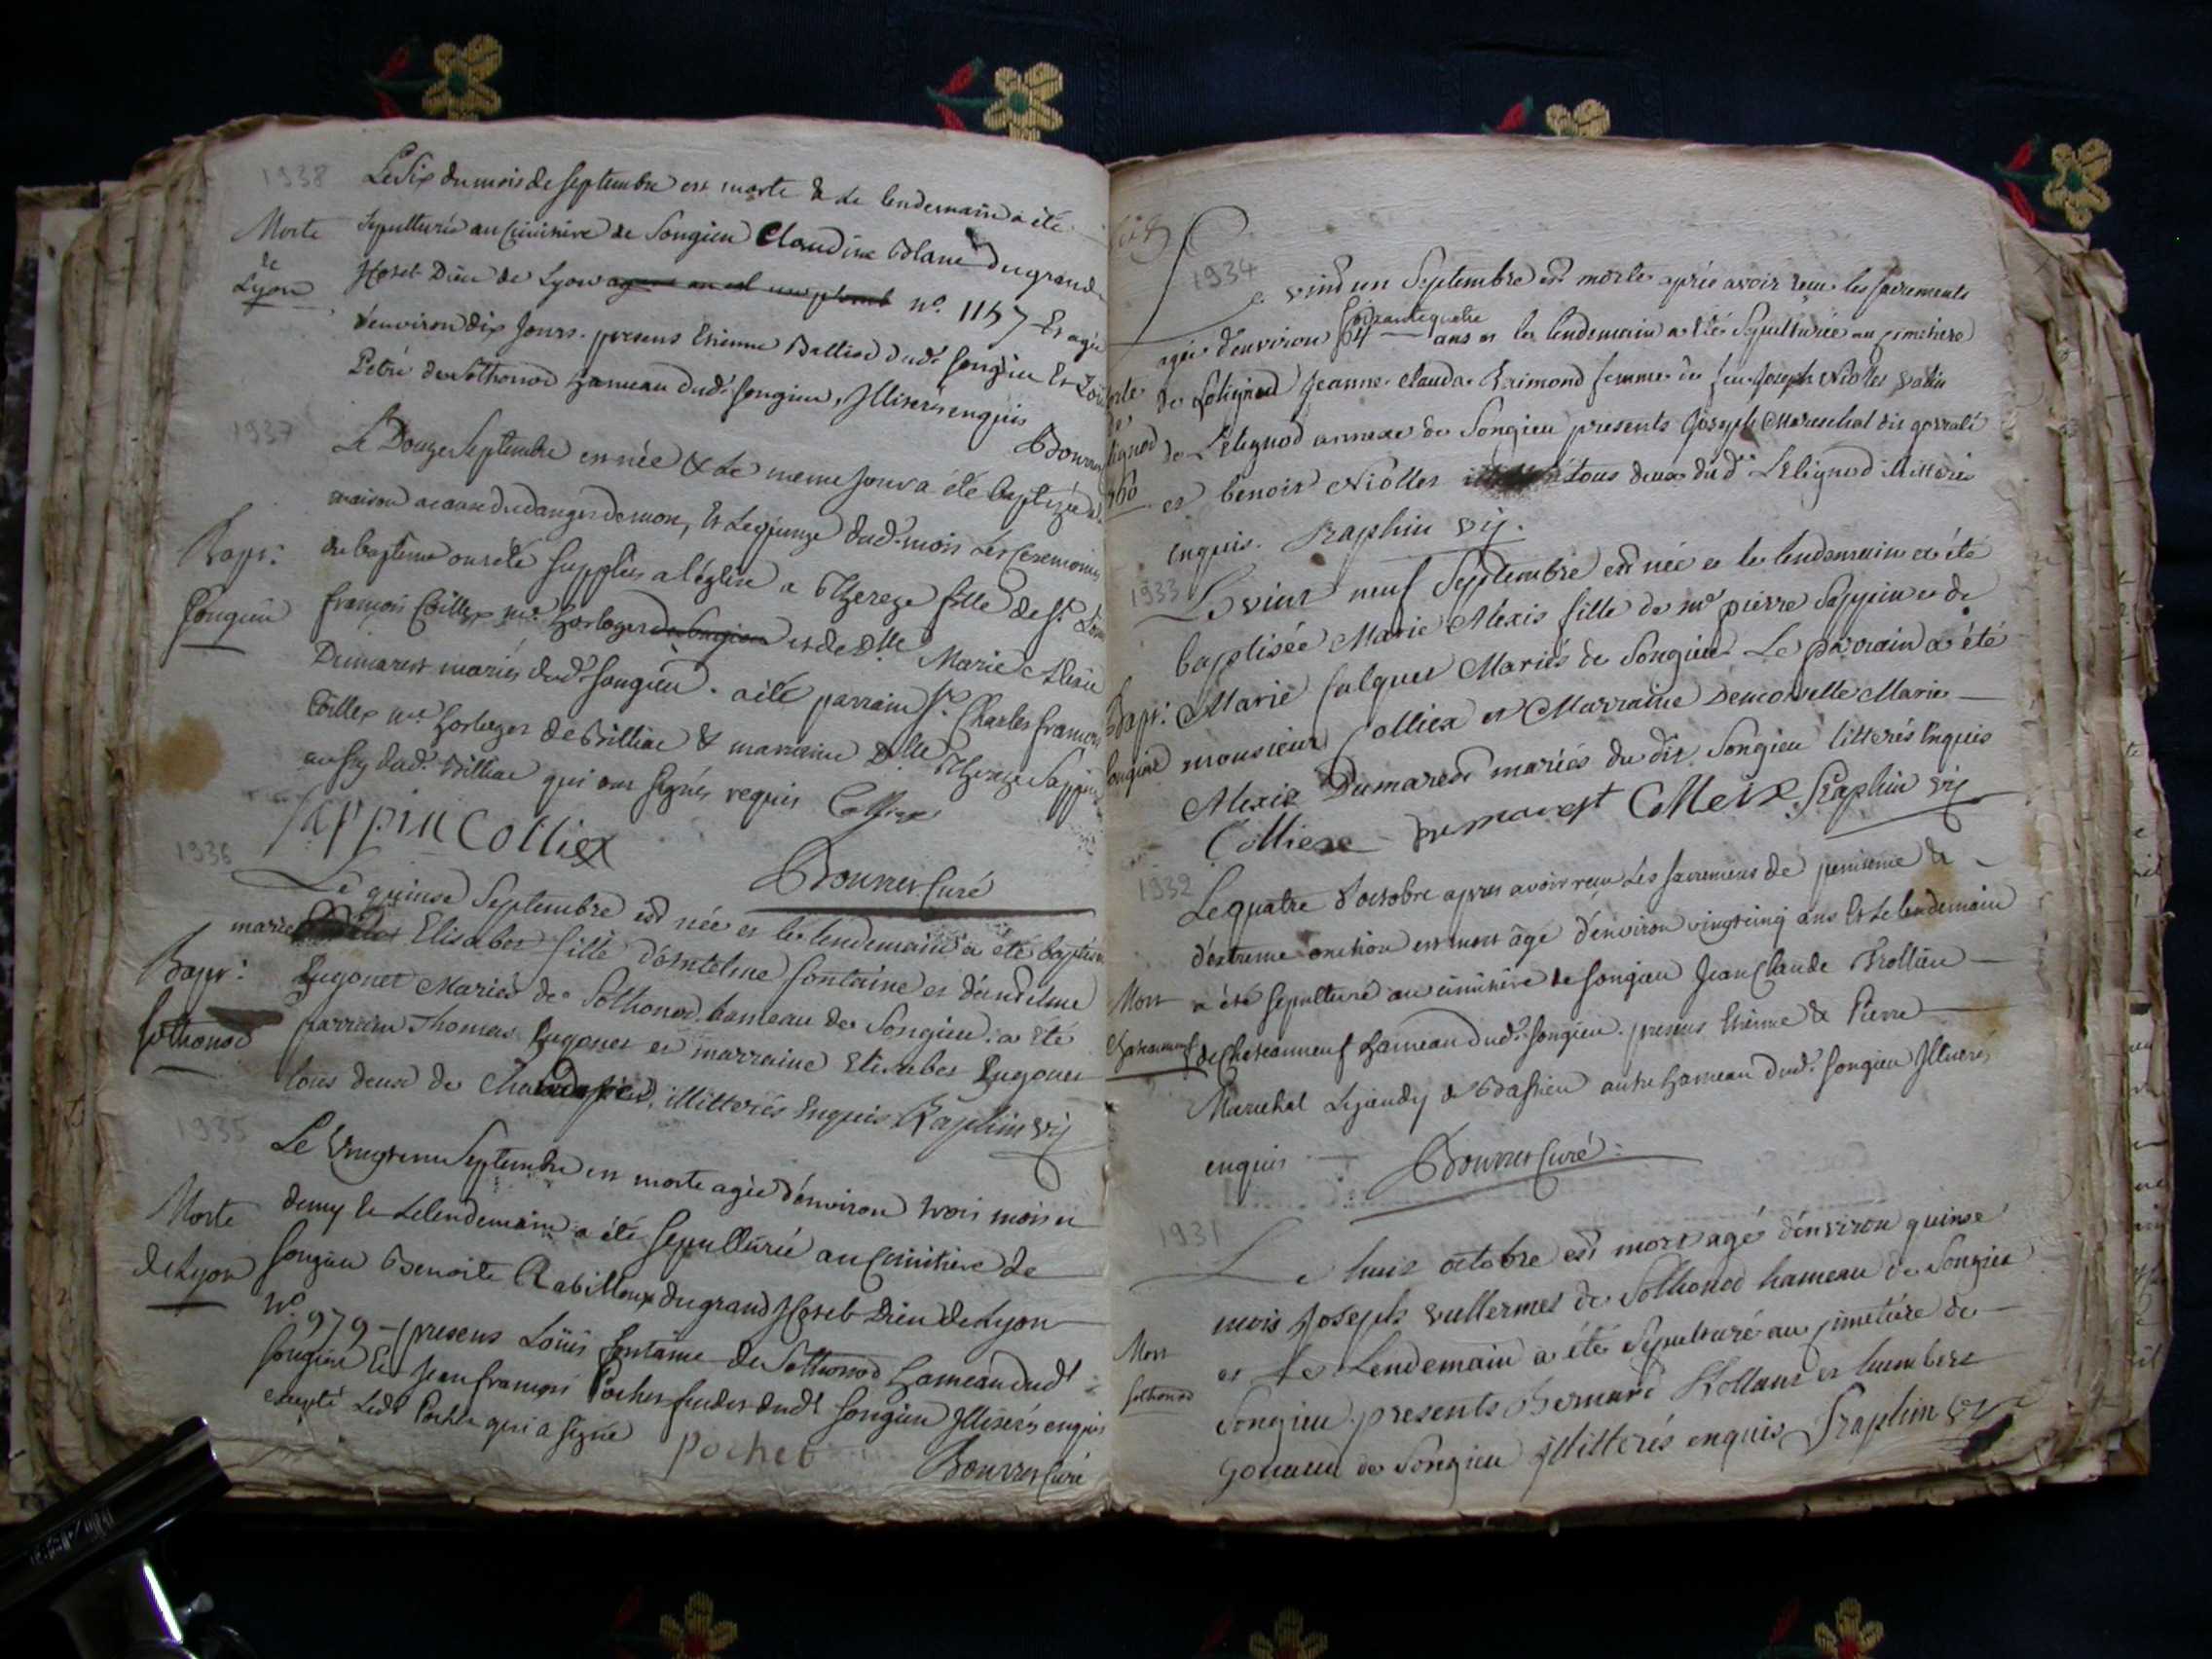 1938
Le Six du mois de septembre est morte & le lendemain a été
Morte
de
Lyon
sepulturée au cimitiere de Songieu Claudine Blanc du grand
Hotel-Dieu de Lyon n.º 1157 Et agée
d'environ dix jours. presens Etienne Ballied dud.t Songieu Et
Petré de Sothonod hameau dud.t Songieu, Illiterés enquis
1937
Le Douze Septembre est née & le meme jour a été baptizée
maison a cause du danger de mort, Et le quinze dud.t mois les ceremonies
Bapt:
Songieu
du baptême ont été supplées a l'église a Thereze fille de S.r
françois Collex m.e horloger et de D.lle Marie Alexie
Dumarest mariés dud.t Songieu. a été parrain S.r Charles françois
Collex m.e horloger de Billiac & marraine D.lle Thereze Sappin
aussy dud.t Billiac qui ont signés requis Colliex
Sappin Colliex
Bouvret Curé
1936
Le quinse Septembre est née et le lendemain a été baptisée
Bapt:
Sothonod
marie Elisabet fille d'Antelme fontaine et d'andelme
Gugonet Mariés de Sothonod hameau de Songieu. a été
parrain Thomas Gugonet et marraine Elisabet Gugonet
tous deux de illitterés Enquis Raphin vic
1935
Le Vingt un Septembre est morte agée d'environ trois mois et
Morte
de Lyon
demy & le lendemain a été sepulturée au cimitiere de
Songieu Benoite Rabilloux du grand Hotel-Dieu de Lyon
N.º 979 - presens Loüis fontaine de Sothonod hameau dud.t
Songieu Et Jean françois Pochet dud.t Songieu Illiterés enquis
excepté led.t Pochet qui a signé
Pochet
Bouvret Curé
1934
Le vint un Septembre est morte aprés avoir reçu les sacrements
agée d'environ soixante quatre 64 ans et le lendemain a été sepulturée au cimitiere
de Lolignod Jeanne Clauda Raimond femme de feu Joseph Niollet
de Lelignod annexe de Songieu presents Joseph Mareschal dit
et benoit Niollet tous deux du d.t Lelignod illitterés
enquis. Raphin vic.
1933
Bapt:
Songieu
Le vint neuf Septembre est née et le lendemain a été
baptisée Marie Alexis fille de m.e pierre Sappin et de
Marie falquet Mariés de Songieu Le parrain a été
monsieur Colliex et Marraine Demoiselle Marie
Alexis Dumarest mariés du dit Songieu litterés Enquis
Colliexe Dumarest Colleix Raphin vic
1932
Le quatre d'octobre apres avoir reçu les sacremens de penitence &
d'extreme onction est mort agé d'environ vingt cinq ans Et le lendemain
Mort
Chateauneuf
a été sepulturé au cimitiere de Songieu Jean Claude Trollieu
de Chateauneuf hameau dud.t Songieu. presens Etienne & Pierre
Marechal de Bassieu autre hameau dud.t Songieu Illiterés
enquis
Bouvret Curé
1931
Le huit octobre est mort agé d'environ quinse
Mort
Sothonod
mois Joseph Vullermet de Sothonod hameau de Songieu
et le Lendemain a été sepulturé au cimetiére de
Songieu presents Bernard Rolland et humbert
de Songieu illitterés enquis Raphin vic